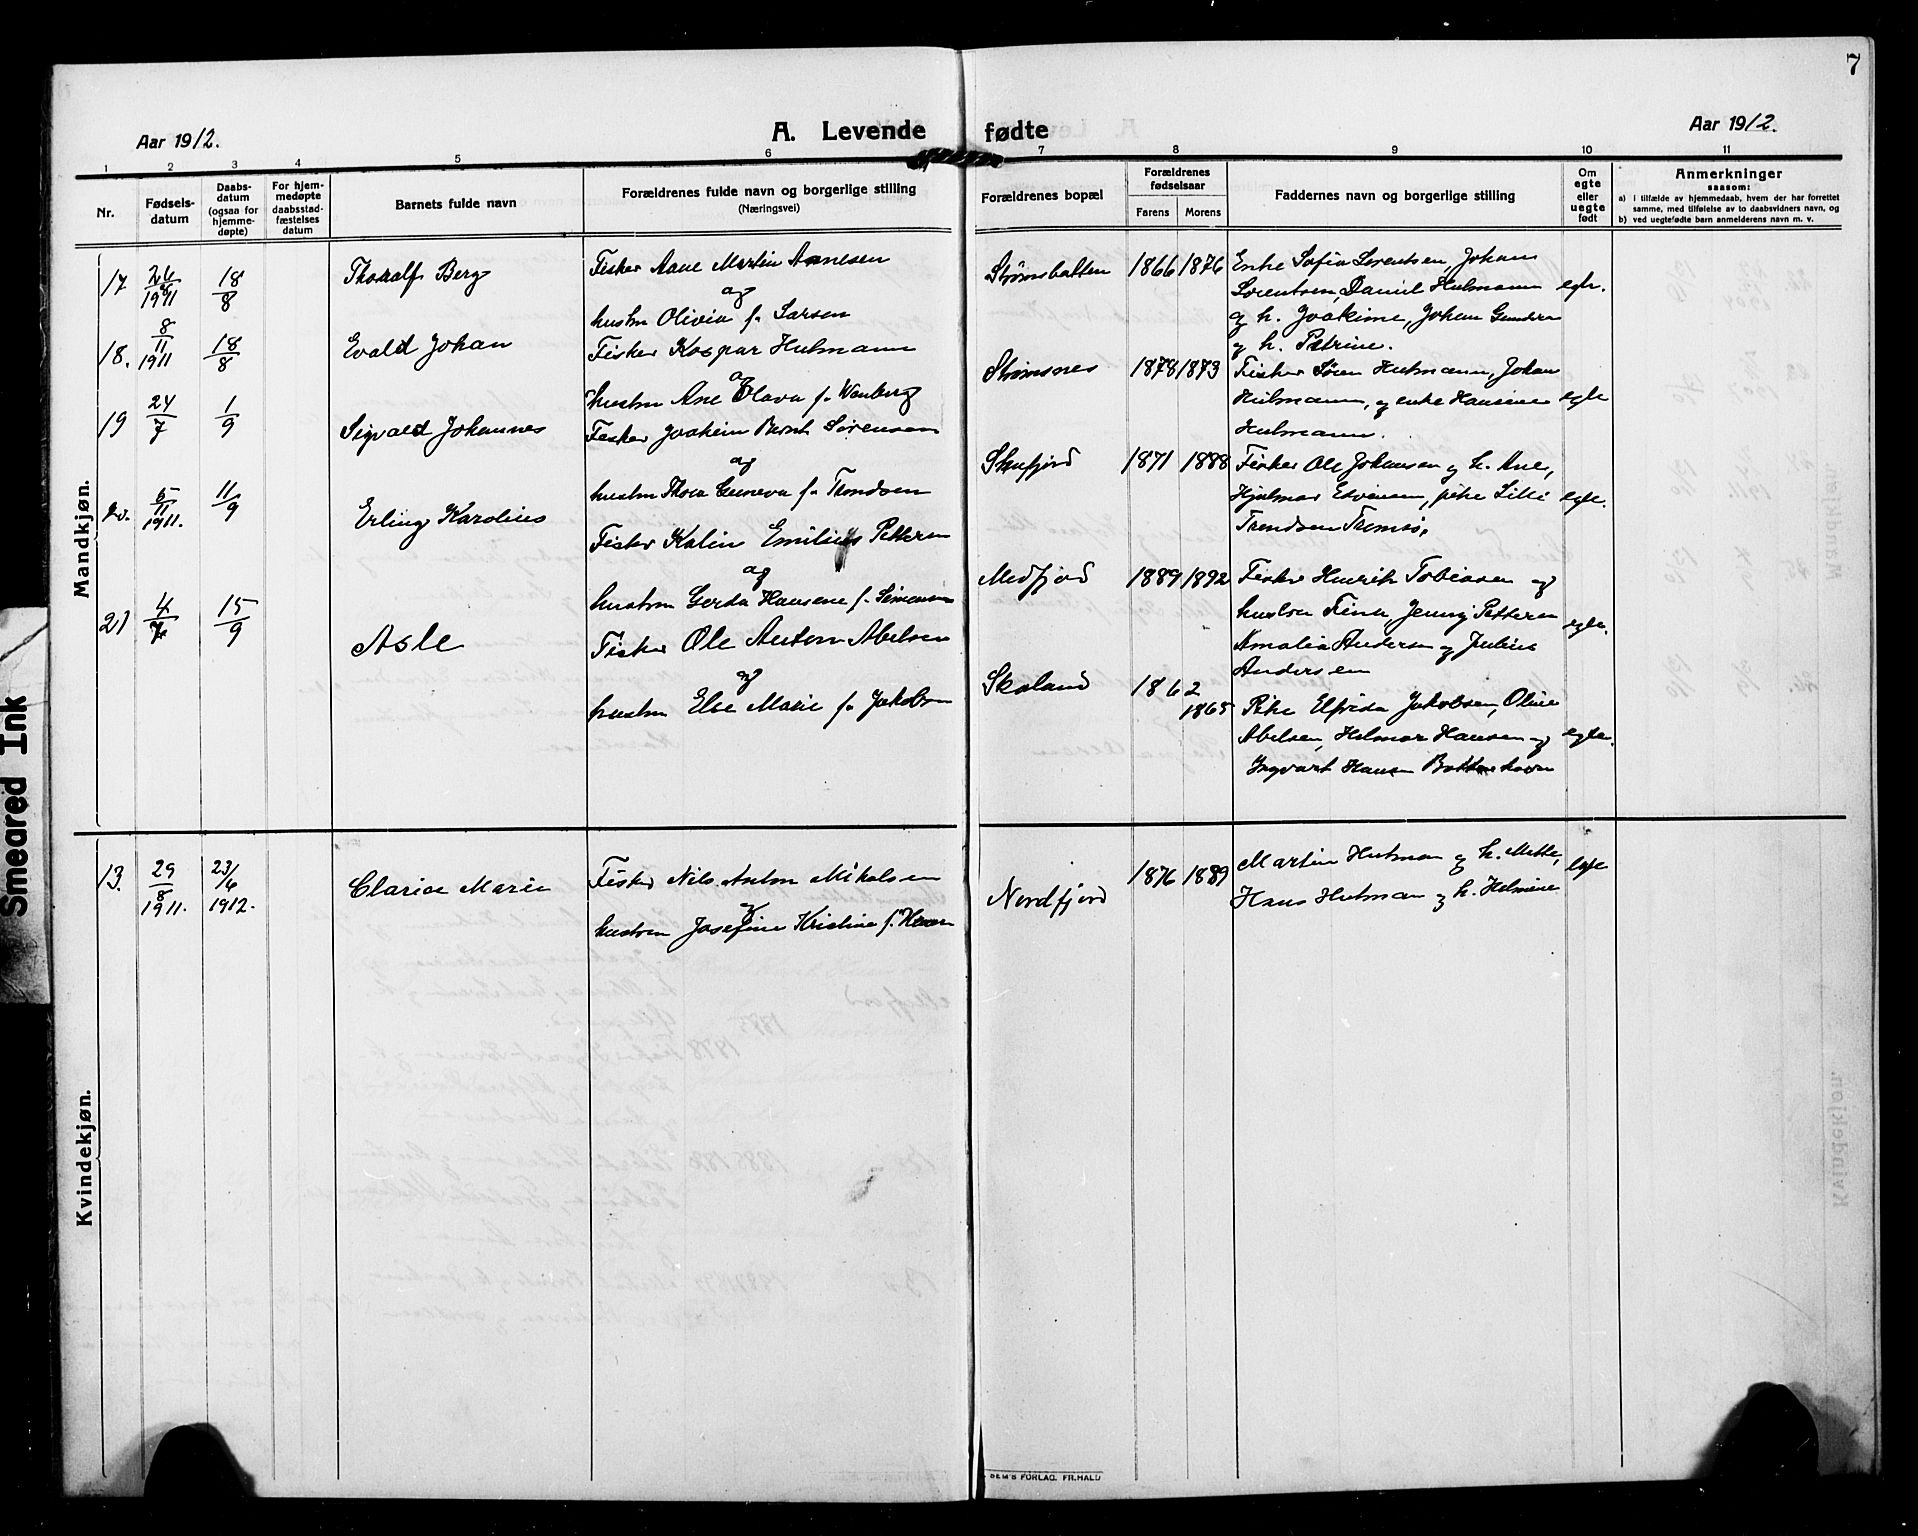 7
Aar 1912.
A. Levende fødte
Aar 1912.
1 2 3 4 5 6 7 8 9 10 11
Nr.
Fødsels-
datum
Daabs-
datum
(ogsaa for
hjemme-
døpte)
For hjem-
medøpte
daabsstad-
fæstelses
datum
Barnets fulde navn
Forældrenes fulde navn og borgerlige stilling
(Næringsvei)
Forældrenes bopæl
Forældrenes
fødselsaar
Farens Morens
Faddernes navn og borgerlige stilling
Om
egte
eller
uegte
født
Anmerkninger
saasom:
a) i tilfælde av hjemmedaab, hvem der har forrettet
samme, med tilføielse av to daabsvidners navn, og
b) ved uegtefødte barn anmelderens navn m. v.
Mandkjøn.
17 1911 18/8 Thoralf Berg
Fisker Aane Martin Arnesen
og
hustru Olivia f. Larsen
Strømsbotten 1866 1876
Enke Sofia Lorentsen, Johan
Lorentsen, Daniel Hulmann
og h. Joakime, Johan
og h. Petrine.
egte.
18. 8/11 1911 18/8 Evald Johan
Fisker Kaspar Hulmann
og
hustru Ane Olava f. Wenberg
Strømsnes 1878 1873
Fisker Søren Hulmann, Johan
Hulmann, og enke Hansine
Hulmann.
egte
19 24/7 1/9 Sigvald Johannes
Fisker Joakim Bernt Sørensen
og
hustru Thora f. Trondsen
Skufjord 1871 1888
Fisker Ole Johansen og h. Ane,
Hjalmar Edvinsen, pike Lilli
Trondsen Tromsø,
egte.
20. 5/11 1911. 11/9 Erling Karolius
Fisker Kolin Emilius Pettersen
og
hustru Gerda Hansene f. Simonsen
Medfjord 1889 1892
Fisker Henrik Tobiasen og
hustru Fina, Jenny Pettersen
Amalia Andersen og Julius
Andersen
egte.
21 4/7 15/9 Asle
Fisker Ole Anton Abelsen
og
hustru Else Marie f. Jakobsen
Skaland 1862 1865
Pike Elfrida Jakobsen, Oline
Abelsen, Helmar Hansen og
Ingvart Hansen
egte.
Kvindekjøn.
13. 29/8 1911. 23/6 1912. Clarice Marie
Fisker Nils Anton Mikalsen
og
hustru Josefine Kristine f. Hansen
Nordfjord 1876 1889
Martin Hulman og h. Mette,
Hans Hulman og h. Helmine
egte
SEM'S FORLAG. FR.HALD
Smeared Ink